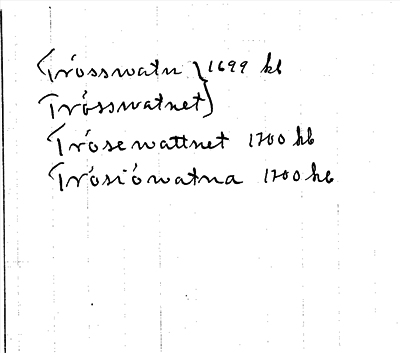 Trósswatn } 1699 kb
Trósswatnet
Trósewattnet 1700 hb
Trósiówatna 1700 hb